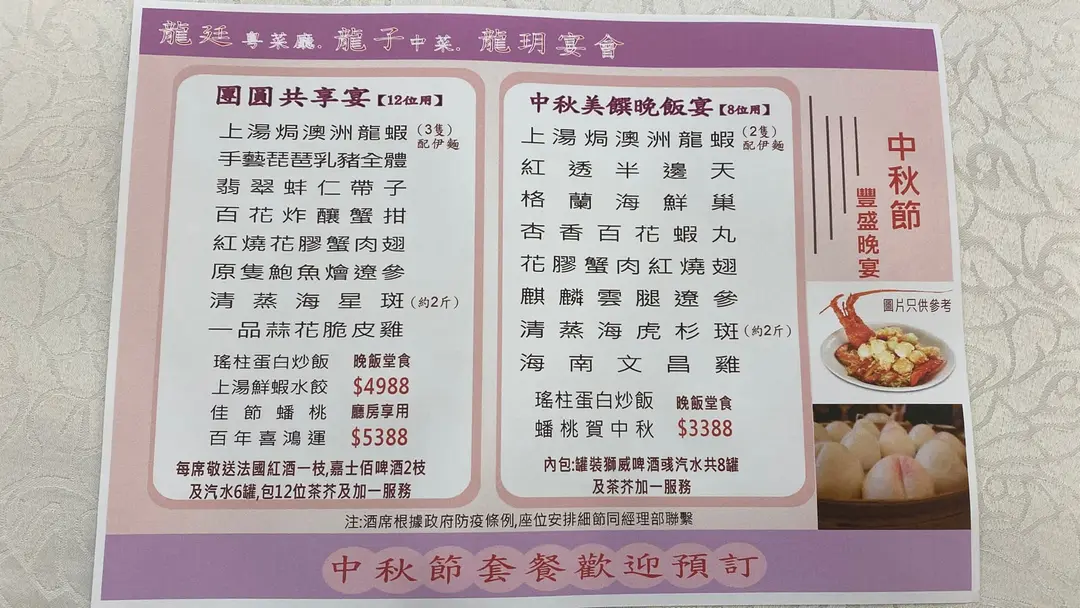 龍廷 粵菜廳. 龍子 中菜. 龍玥宴會
團圓共享宴【12位用】
上湯焗澳洲龍蝦 (3隻) 配伊麵
手藝琵琶乳豬全體
翡翠蚌仁帶子
百花炸釀蟹拑
紅燒花膠蟹肉翅
原隻鮑魚燴遼參
清蒸海星斑 (約2斤)
一品蒜花脆皮雞
瑤柱蛋白炒飯 晚飯堂食
上湯鮮蝦水餃 $4988
佳節蟠桃 廳房享用
百年喜鴻運 $5388
每席敬送法國紅酒一枝,嘉士佰啤酒2枝
及汽水6罐,包12位茶芥及加一服務
中秋美饌晚飯宴【8位用】
上湯焗澳洲龍蝦 (2隻) 配伊麵
紅透半邊天
格蘭海鮮巢
杏香百花蝦丸
花膠蟹肉紅燒翅
麒麟雲腿遼參
清蒸海虎杉斑 (約2斤)
海南文昌雞
瑤柱蛋白炒飯 晚飯堂食
蟠桃賀中秋 $3388
內包:罐裝獅威啤酒彧汽水共8罐
及茶芥加一服務
中秋節
豐盛晚宴
圖片只供參考
注:酒席根據政府防疫條例,座位安排細節同經理部聯繫
中秋節套餐歡迎預訂